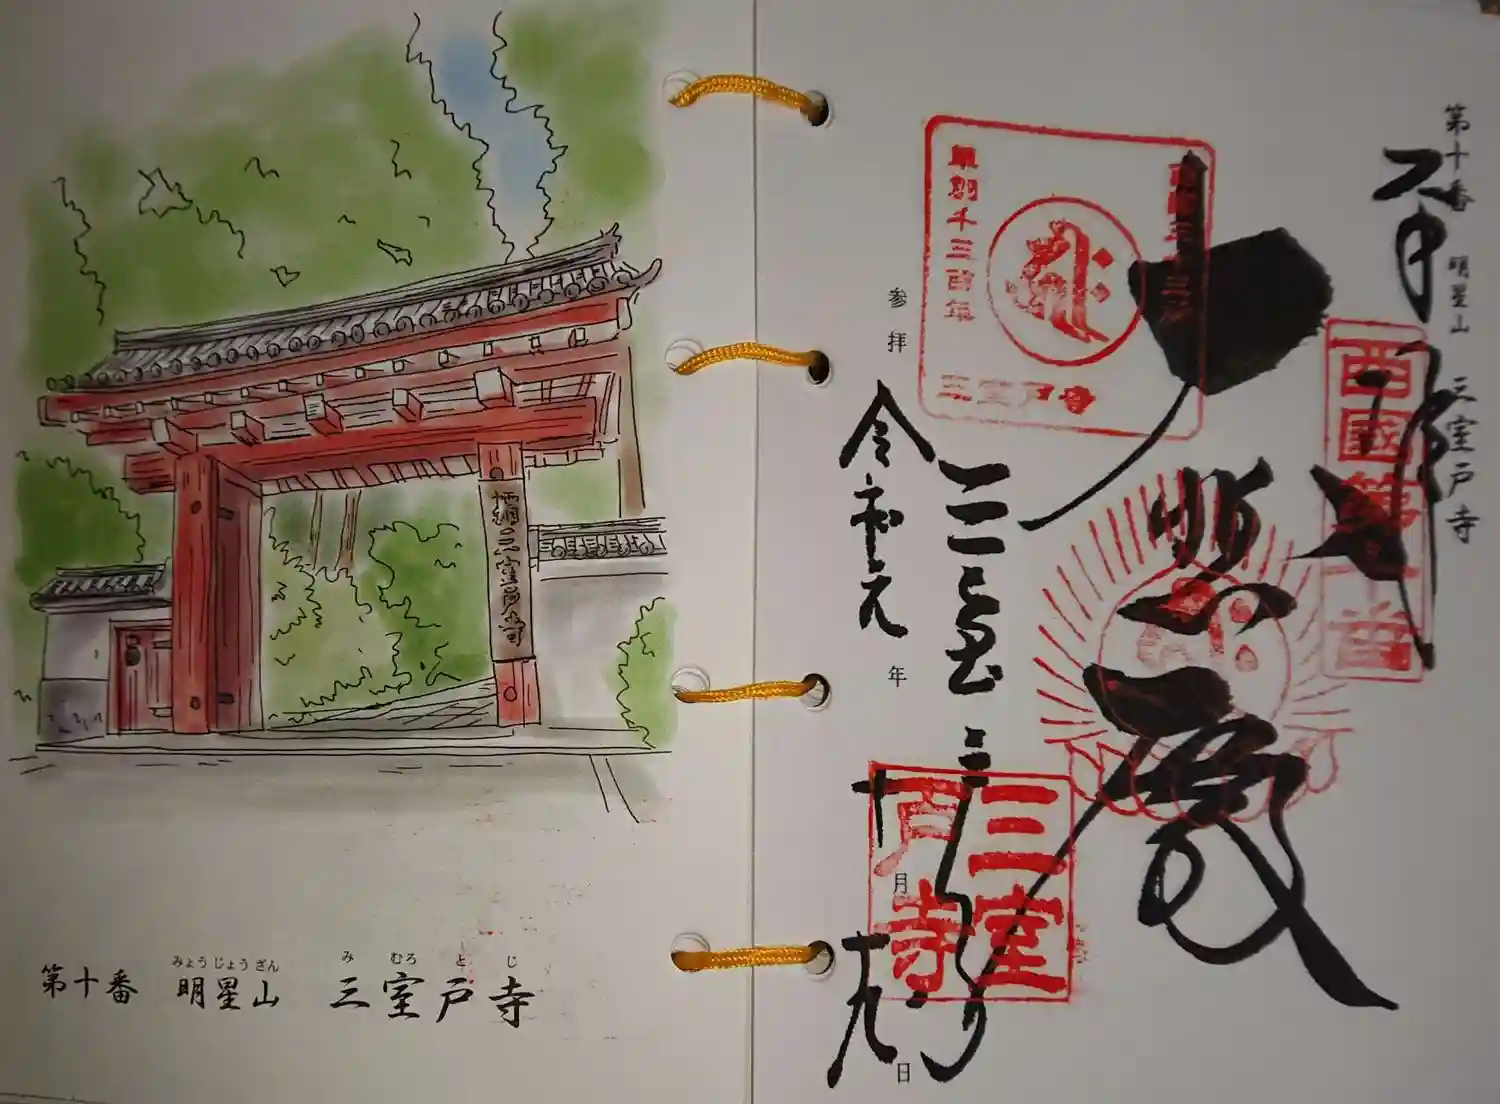 三室戸寺
みょうじょうざん　みむろとじ
第十番　明星山　三室戸寺
第十番　明星山　三室戸寺
奉拝
西國第十番
西國三十三所
草創千三百年
三室戸寺
三室戸寺
三室戸寺
参拝　令和元年　十月十九日